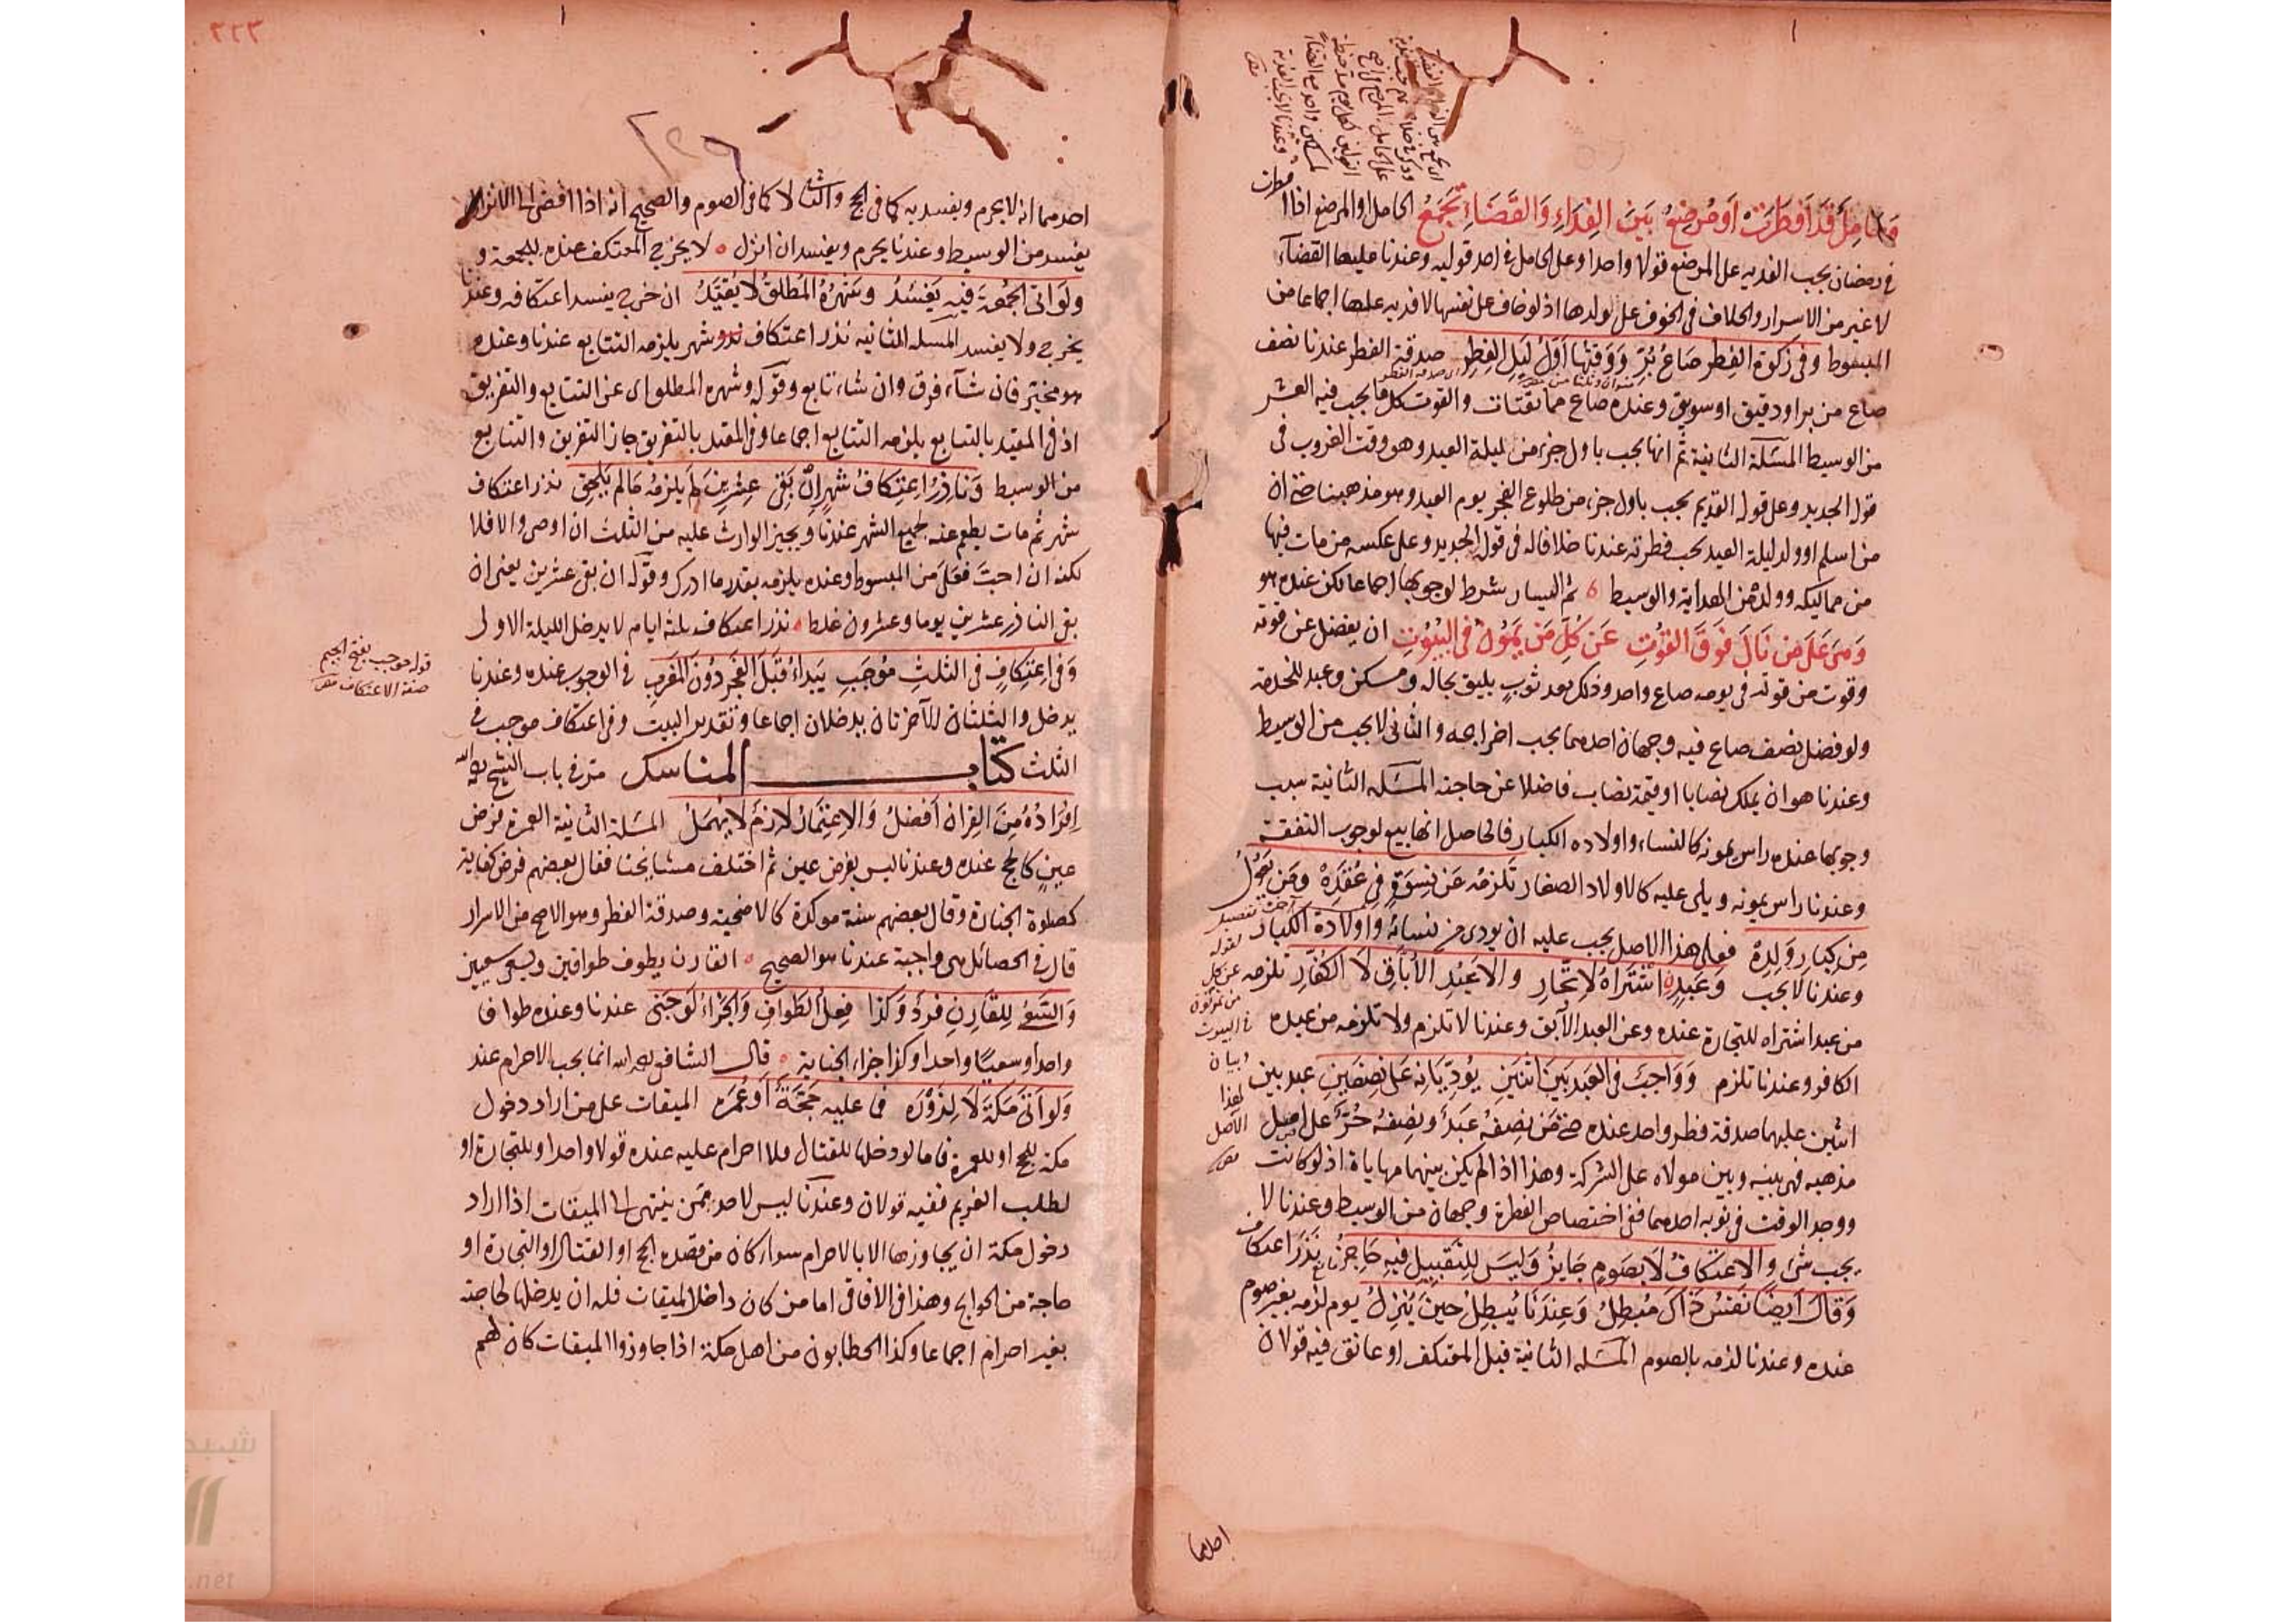 وحامل قد افطرت او مرضع بين الفداء والقضاء تجمع الحامل او المرضع اذا افطرت
في رمضان يجب الفديه على المرضع قولا واحدا وعلى الحامل في احد قوليه وعندنا عليها القضآء
لا غير من الاسرار والخلاف في الخوف على ولدها اذ لو خاف على نفسها لا فديه عليها اجماعا من
المبسوط وفى زكوة الفطر صاع بر ووقتها اول ليل الفطر صدقة الفطر عندنا نصف
صاع من بر او دقيق او سويق وعنده صاع مما يقتات والقوت كل ما يجب فيه العشر
من الوسيط المسئلة الثانية ثم انها يجب باول جزء من ليلة العيد وهو وقت الغروب فى
قوله الجديد وعلى قوله القديم يجب باول جزء من طلوع الفجر يوم العيد وهو مذهبنا حتى ان
من اسلم او ولد ليلة العيد يجب فطرته عندنا خلافا له فى قوله الجديد وعلى عكسه من مات فيها
من مماليكه وولده من الهداية والوسيط ثم اليسار شرط لوجوبها اجماعا لكن عنده هو
وهى على من نال فوق القوت عن كل من يمون فى البيوت ان يفضل عن قوته
وقوت من قوته فى يومه صاع واحد وذلك بعد ثوب يليق بحاله ومسكن وعبد للخدمة
ولو فضل نصف صاع فيه وجهان احدهما يجب اخراجه والثانى لا يجب من الوسيط
وعندنا هو ان يملك نصابا او قيمة نصاب فاضلا عن حاجته المسئله الثانية سبب
وجوبها عنده راس يمونه كالنساء واولاده الكبار فالحاصل انها تبع لوجوب النفقة
وعندنا راس يمونه ويلى عليه كالاولاد الصغار تلزمه عن نسوة فى عقده ومن يعول
من كبار ولده فعلى هذا الاصل يجب عليه ان يودى من نسائه واولاده الكبار
وعندنا لا يجب وعبده اشتراه لاتجار والاعبد الاباق لا الكفار تلزمه
من عبد اشتراه للتجارة عنده وعن العبد الآبق وعندنا لا تلزم ولا تلزمه من عبده
الكافر وعندنا تلزم وواجب فى العبد بين اثنين يؤديانه على نصفين عبد بين
اثنين عليهما صدقة فطر واحد عنده حتى من نصفه عبد ونصفه حر على اصل
مذهبه فهى بينه وبين مولاه على الشركة وهذا اذا لم يكن بينهما مهاياة اذ لو كانت
ووجد الوقت فى نوبه احدهما ففى اختصاص الفطرة وجهان من الوسيط وعندنا لا
يجب شئ والاعتكاف لا بصوم جايز وليس للتقبيل فيه حاجز نذر اعتكاف
وقال ايضا نفس ذاك مبطل وعندنا يبطل حين ينزل يوم لزمه بغير صوم
عنده وعندنا لزمه بالصوم المسئله الثانية قبل المعتكف او عانق فيه قولان
احدهما
احدهما انه لا يحرم ويفسد به كما فى الحج والثانى لا كما فى الصوم والصحيح انه اذا افضى الى الانزال
يفسد من الوسيط وعندنا يحرم ويفسد ان انزل لا يخرج المعتكف عنده للجمعة و
ولو اتى الجمعة فيه يفسد وشهره المطلق لا يقيد ان خرج يفسد اعتكافه وعندنا
يخرج ولا يفسد المسئله الثانيه نذر اعتكاف شهر يلزمه التتابع عندنا وعنده
هو مخير فان شآء فرق وان شاء تابع وقوله وشهره المطلق اى عن التتابع والتفريق
اذ فى المقيد بالتتابع يلزمه التتابع اجماعا وفى المقيد بالتفريق جاز التفريق والتتابع
من الوسيط وناذر اعتكاف شهر ان بقى عشرين لم يلزمه ما لم يلحق نذر اعتكاف
شهر ثم مات يطعم عنه لجميع الشهر عندنا ويجبر الوارث عليه من الثلث ان اوصى والا فلا
لكنه ان احب فعل من المبسوط وعنده يلزمه بقدر ما ادرك وقوله ان بقى عشرين يعنى ان
بقى الناذر عشرين يوما وعشرون غلط نذر اعتكاف ثلثة ايام لا يدخل الليلة الاولى
وفى اعتكاف فى الثلث موجب يبدا قبل الفجر دون المغرب فى الوجوب عنده وعندنا
يدخل والليلتان الآخرتان يدخلان اجماعا وتقدير البيت وفى اعتكاف موجب فى
الثلث كتاب المناسك مر فى باب الشيخ رحمه الله
افراده من القران افضل والاعتمار لازم لا يهمل المسئلة الثانية العمرة فرض
عين كالحج عنده وعندنا ليس بفرض عين ثم اختلف مشايخنا فقال بعضهم فرض كفاية
كصلوة الجنازة وقال بعضهم سنة موكدة كالاضحية وصدقة الفطر وهو الاصح من الاسرار
قال فى الحصائل هى واجبة عندنا هو الصحيح القارن يطوف طوافين ويسعى سعيين
والسعى للقارن فرد وكذا فعل الطواف والجزاء لو جنى عندنا وعنده طوافا
واحدا وسعيا واحدا وكذا جزاء الجناية قال الشافعى رحمه الله انما يجب الاحرام عند
ولو اتى مكة لا لزوره فى عليه حجة او عمره الميقات على من اراد دخول
مكة للحج او للعمرة فاما لو دخلها للقتال فلا احرام عليه عنده قولا واحدا وللتجارة او
لطلب الغريم ففيه قولان وعندنا ليس لاحد ممن ينتهى الى الميقات اذا اراد
دخول مكة ان يجاوزها الا بالاحرام سواء كان من قصده الحج او القتال او التجارة او
حاجة من الحوايج وهذا فى الآفاقى اما من كان داخل الميقات فله ان يدخلها لحاجته
بغير احرام اجماعا وكذا الحطابون من اهل مكة اذا جاوزوا الميقات كان لهم
قوله موجب بفتح الجيم
صفة الاعتكاف
٢٢٣